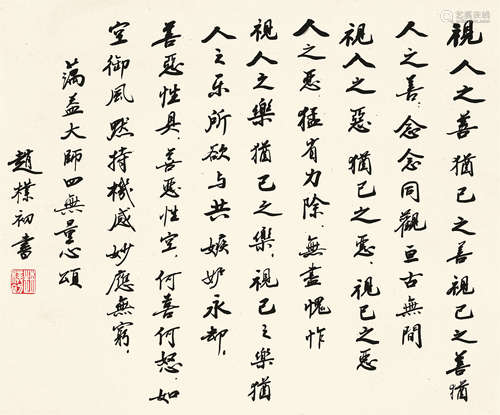 視人之善猶己之善視己之善猶
人之善.念念同觀亘古無間
視人之惡猶己之惡.視己之惡
人之惡.猛省力除.無盡愧怍
視人之樂猶己之樂.視己之樂猶
人之乐所欲与共嫉妒永却.
善惡性具.善惡性空.何喜何怒.如
空御風默持機感妙應無窮.
蕅益大師四無量心頌
趙樸初書
艺典在线